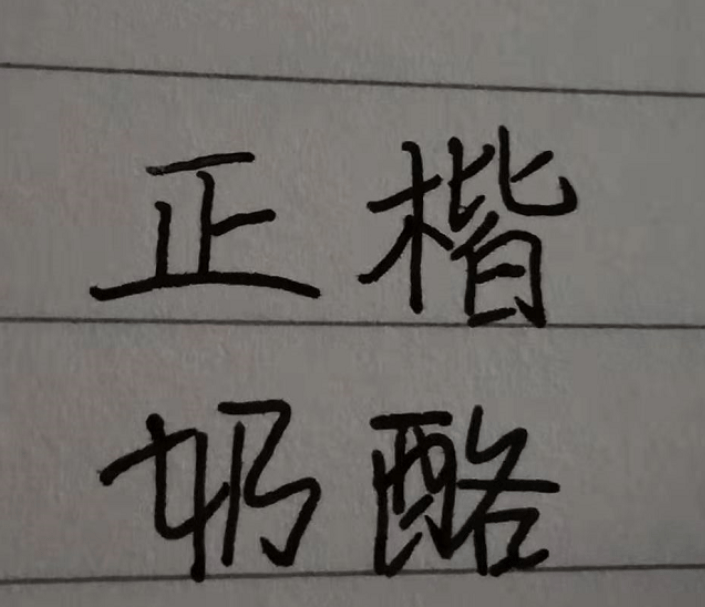 正楷
奶酪